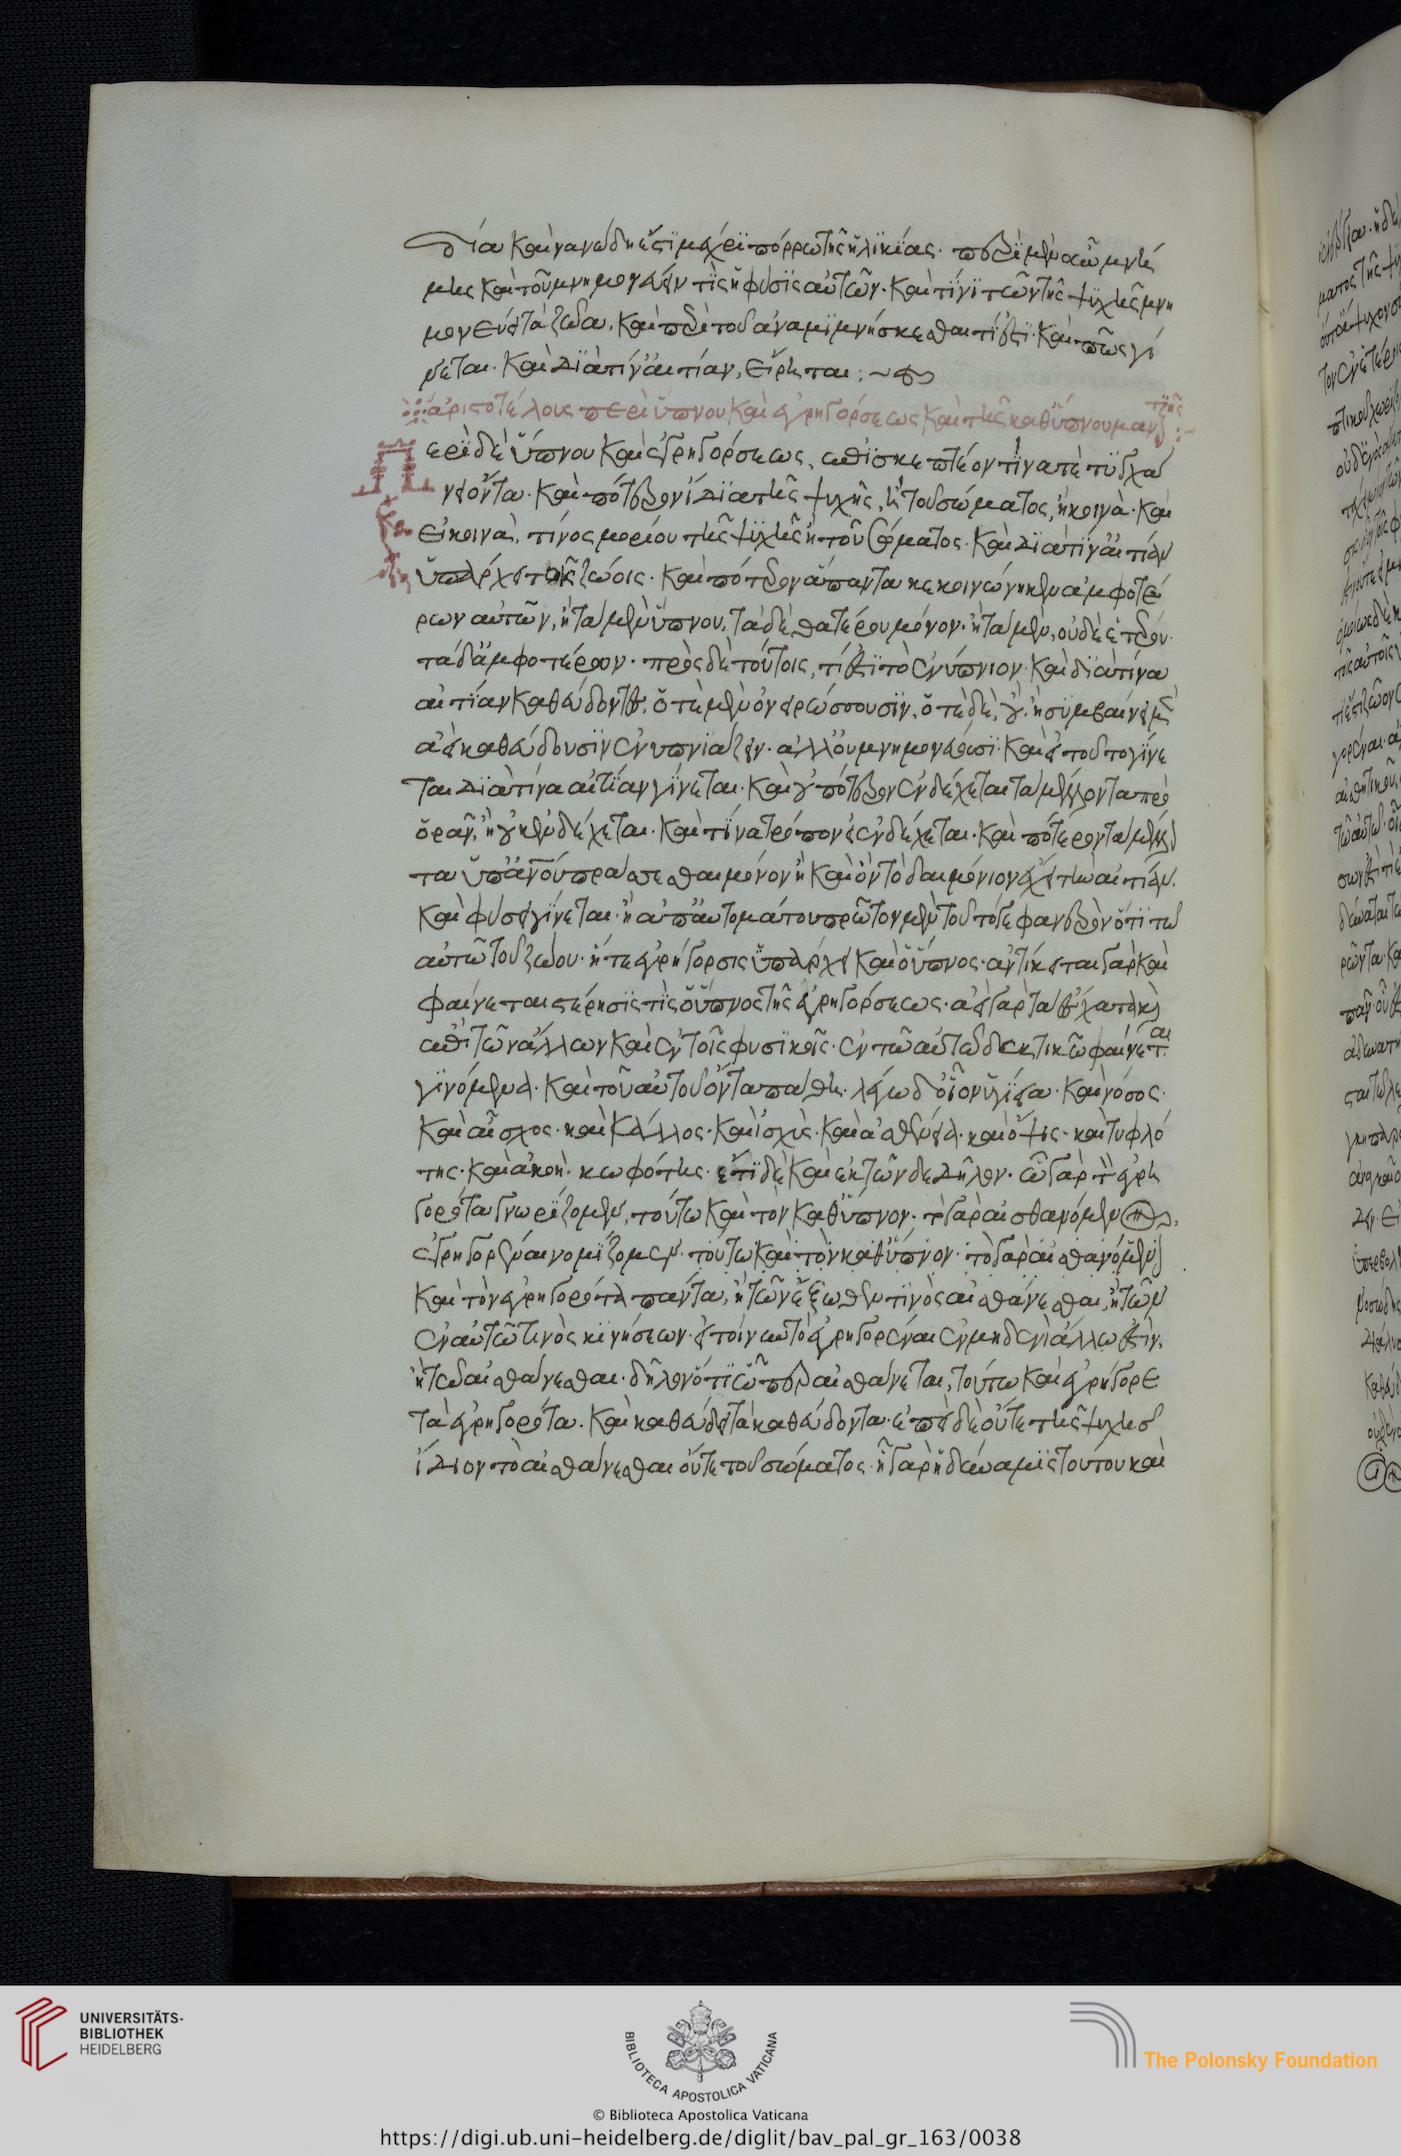 δία καὶ νανώδη ἐστὶ μέχρι πόρρω τῆς ἡλικίας. περὶ μὲν οὖν μνή
μης καὶ τοῦ μνημονεύειν τίς ἡ φύσις αὐτῶν. καὶ τίνι τῶν τῆς ψυχῆς μνη
μονεύει τὰ ζῶα. καὶ περὶ τοῦ ἀναμιμνήσκεσθαι τί ἐστι. καὶ πῶς γί
νεται. καὶ διὰ τίν' αἰτίαν, εἴρηται:
ἀριστοτέλους περὶ ὕπνου καὶ ἐγρηγόρσεως καὶ τῆς καθ' ὕπνου μαντικῆς:
Περὶ δὲ ὕπνου καὶ ἐγρηγόρσεως, ἐπισκεπτέον τίνα τε τυγχά
νει ὄντα. καὶ πότερον ἴδια τῆς ψυχῆς, ἢ τοῦ σώματος, ἢ κοινά. καὶ
εἰ κοινὰ, τίνος μορίου τῆς ψυχῆς ἢ τοῦ σώματος. καὶ διὰ τίν' αἰτίαν
ὑπάρχει τοῖς ζώοις. καὶ πότερον ἅπαντα κεκοινώνηκεν ἀμφοτέ
ρων αὐτῶν, ἢ τὰ μὲν ὕπνου, τὰ δὲ θατέρου μόνον. ἢ τὰ μὲν, οὐδετέρου.
τὰ δ' ἀμφοτέρων. πρὸς δὲ τούτοις, τί ἐστι τὸ ἐνύπνιον. καὶ διὰ τίνα
αἰτίαν καθεύδοντες, ὁτὲ μὲν ὀνειρώττουσιν, ὁτὲ δὲ, οὔ. ἢ συμβαίνει μὲν
ἀεὶ καθεύδουσιν ἐνυπνιάζειν. ἀλλ' οὐ μνημονεύουσι. καὶ εἰ τοῦτο γίνε
ται διὰ τίνα αἰτίαν γίνεται. καὶ πότερον ἐνδέχεται τὰ μέλλοντα προ
ορᾶν, ἢ οὐκ ἐνδέχεται. καὶ τίνα τρόπον εἰ ἐνδέχεται. καὶ πότερον τὰ μέλλον
τα ὑπ' ἀνθρώπου πράσσεσθαι μόνον ἢ καὶ ὧν τὸ δαιμόνιον ἔχει τὴν αἰτίαν.
καὶ φύσει γίνεται. ἢ ἀπ' αὐτομάτου πρῶτον μὲν τοῦτό γε φανερὸν ὅτι τῶ
αὐτῶ τοῦ ζώου. ἥ τε ἐγρήγορσις ὑπάρχει καὶ ὁ ὕπνος. ἀντίκειται γὰρ καὶ
φαίνεται στέρησίς τις ὁ ὕπνος τῆς ἐγρηγόρσεως. ἀεὶ γὰρ τὰ ἔσχατα καὶ
ἐπὶ τῶν ἄλλων καὶ ἐν τοῖς φυσικοῖς. ἐν τῶ αὐτῶ δεκτικῶ φαίνεται
γινόμενα. καὶ τοῦ αὐτοῦ ὄντα πάθη. λέγω δ' οἷον ὑγίεια. καὶ νόσος.
καὶ αἶσχος. καὶ κάλλος. καὶ ἰσχὺς. καὶ ἀσθένεια. καὶ ὄψις. καὶ τυφλό
της. καὶ ἀκοὴ. κωφότης. ἔτι δὲ καὶ ἐκ τῶνδε δῆλον. ὧ γὰρ τὸν ἐγρη
γορότα γνωρίζομεν, τούτω καὶ τὸν καθ' ὕπνον. τὸ γὰρ αἰσθανόμενον,
ἐγρηγορέναι νομίζομεν. τούτω καὶ τὸν καθ' ὕπνον. τὸ γὰρ αἰσθανόμενον
καὶ τὸν ἐγρηγορότα πάντα, ἢ τῶν ἔξωθεν τινὸς αἰσθάνεσθαι, ἢ τῶν
ἐν αὐτῶ τινὸς κινήσεων. εἰ τοίνυν τὸ ἐγρηγορέναι ἐν μηδενὶ ἄλλω ἐστὶν.
ἢ τῶ αἰσθάνεσθαι. δῆλον ὅτι ὧπερ αἰσθάνεται, τούτω καὶ ἐγρήγορε
τὰ ἐγρηγορότα. καὶ καθεύδει τὰ καθεύδοντα. ἐπεὶ δὲ οὔτε τῆς ψυχῆς
ἴδιον τὸ αἰσθάνεσθαι οὔτε τοῦ σώματος. ἧ γὰρ ἡ δύναμις τούτου καὶ
UNIVERSITÄTS-
BIBLIOTHEK
HEIDELBERG
BIBLIOTECA APOSTOLICA VATICANA
The Polonsky Foundation
© Biblioteca Apostolica Vaticana
https://digi.ub.uni-heidelberg.de/diglit/bav_pal_gr_163/0038